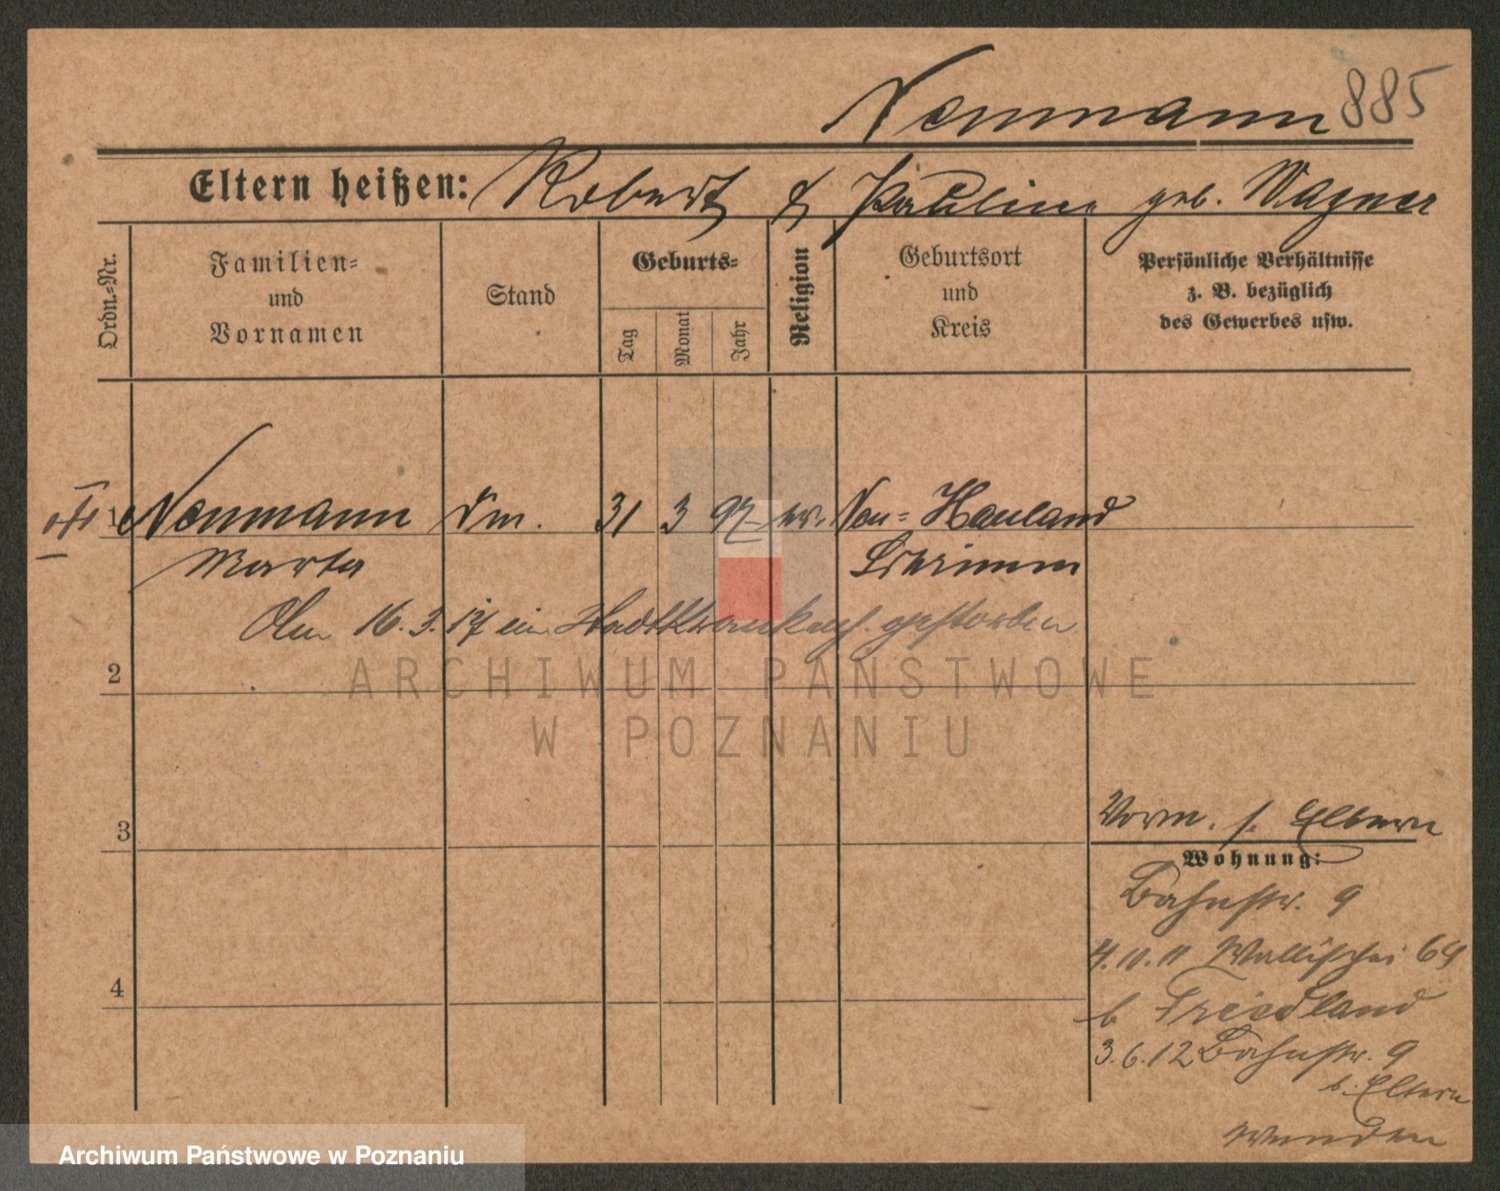 Neumann 885
Eltern heißen: Robert & Pauline geb. Wagner
Ordn.-Nr.
Familien-
und
Vornamen
Stand
Geburts-
Tag
Monat
Jahr
Religion
Geburtsort
und
Kreis
Persönliche Verhältnisse
z. B. bezüglich
des Gewerbes usw.
1 Neumann 31 3 97 ev. Neu-Hauland
Marta Schrimm
Am 16.3.17 im Stadtkrankenh. gestorben
2
3
4
Vorm. s. Eltern
Wohnung:
Bahnstr. 9
4.10.11 Wallischei 69
b Friedland
3.6.12 Bahnstr. 9
b. Eltern
wenden
ARCHIWUM PAŃSTWOWE
W POZNANIU
Archiwum Państwowe w Poznaniu